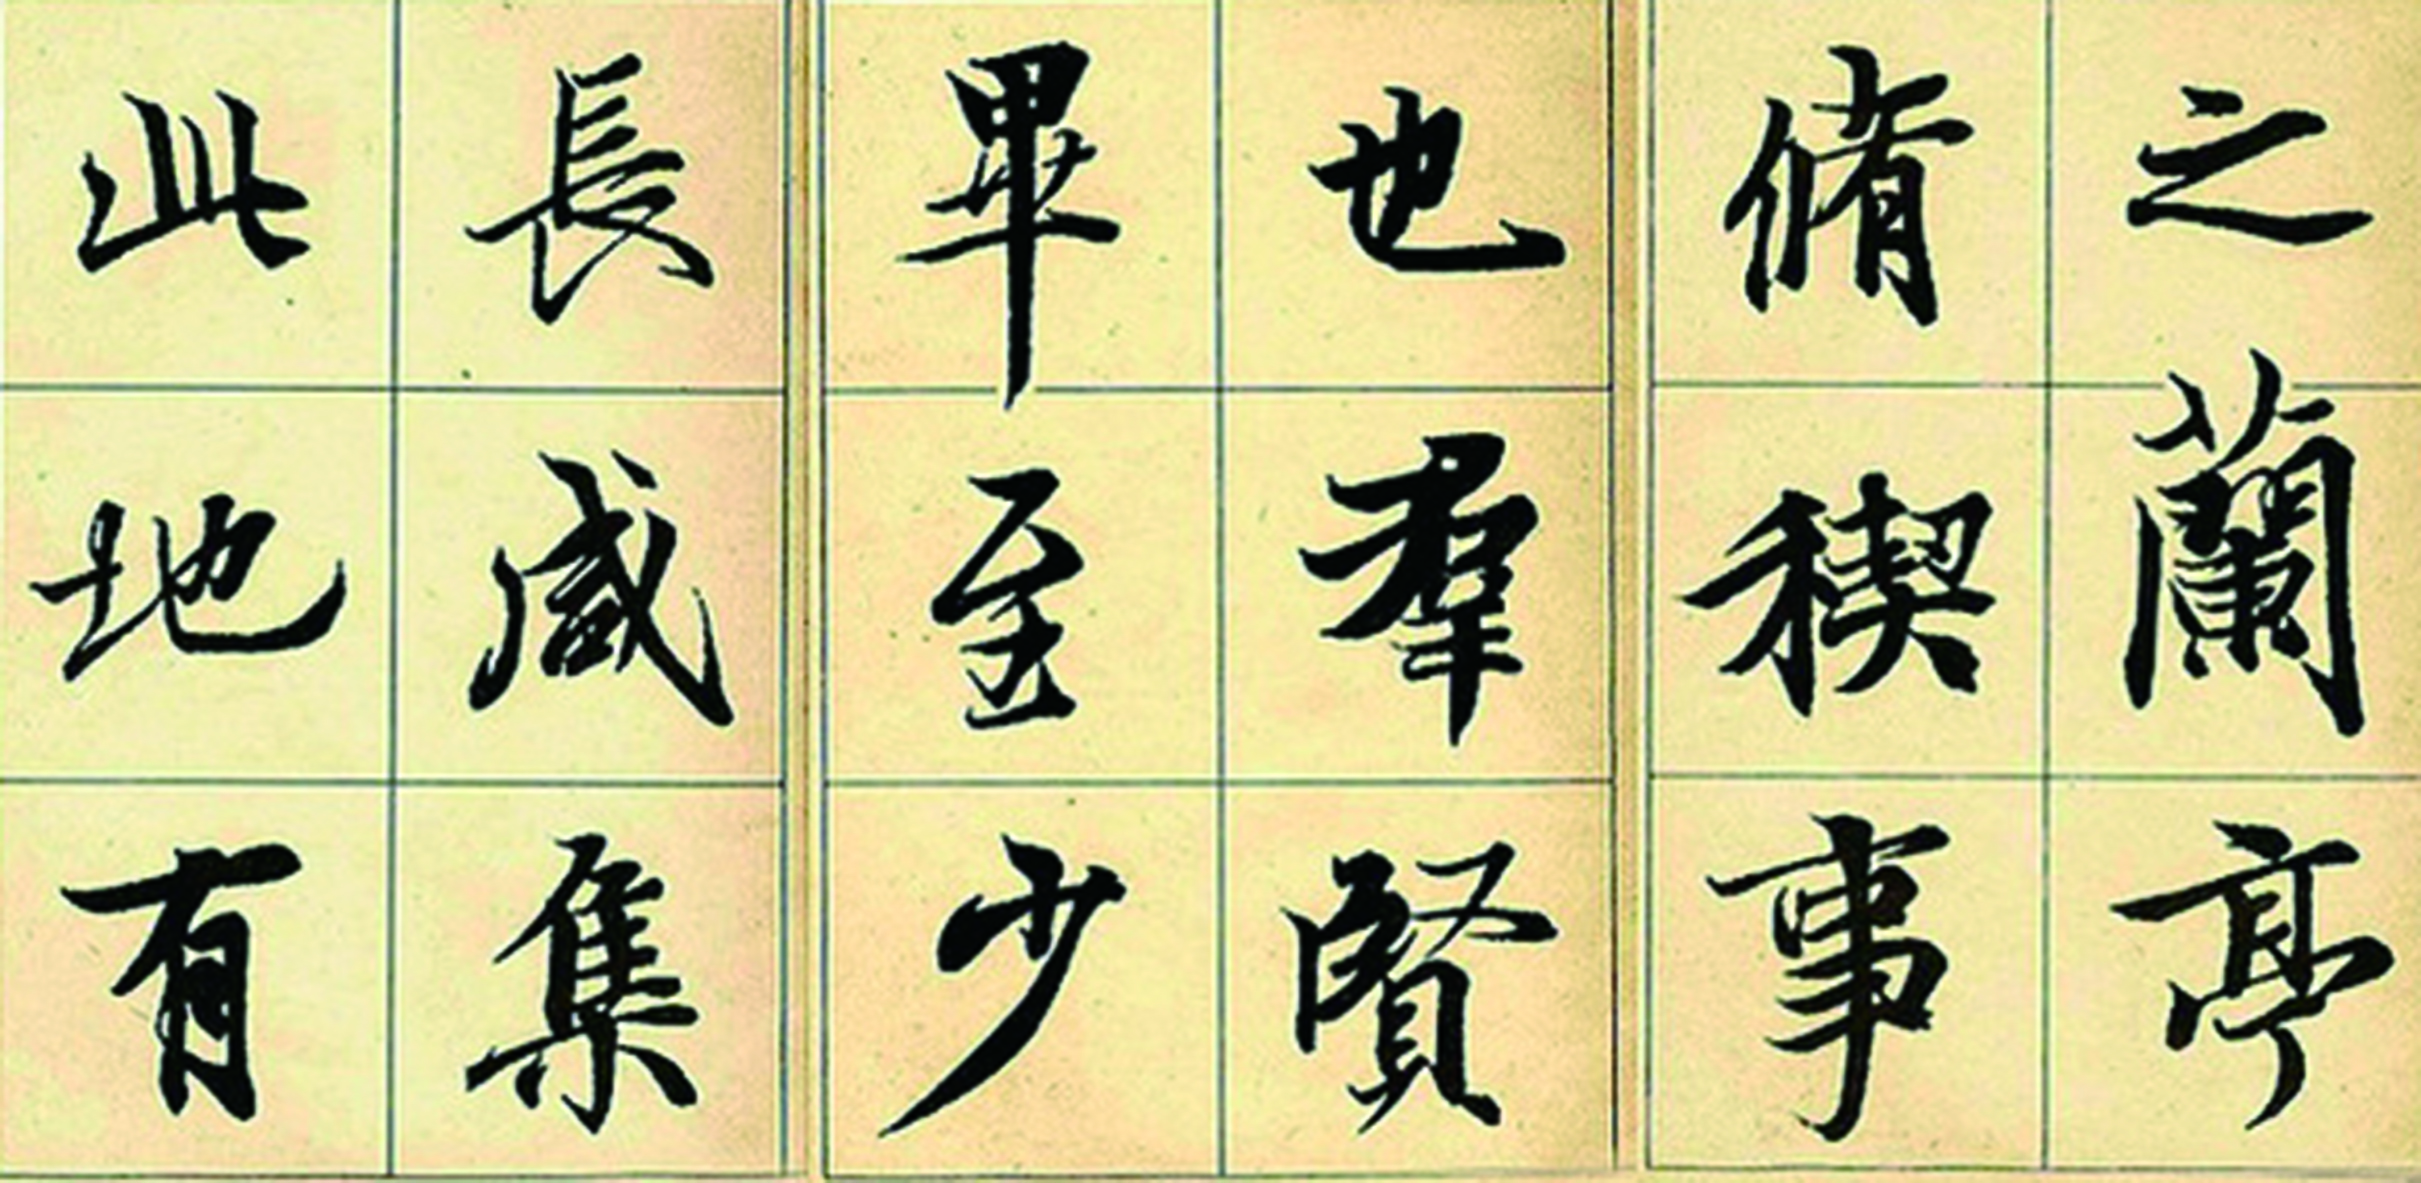 之蘭亭
脩稧事
也羣賢
畢至少
長咸集
此地有